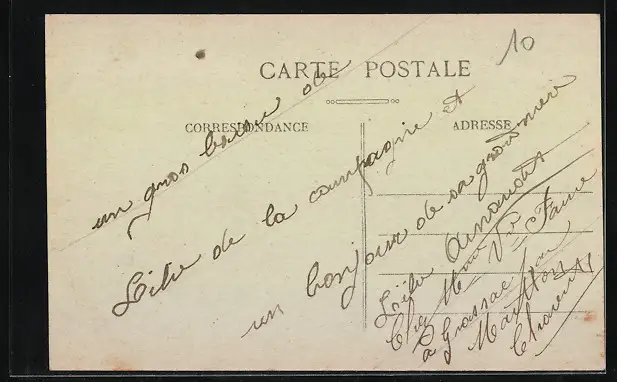 10
CARTE POSTALE
CORRESPONDANCE
ADRESSE
un gros baiser de
Lélie de la campagne et
un bonjour de sa grandmère
Lélie Arnaoult
Chez Mme Vve Faure
à Grassac par
Marthon
Charente